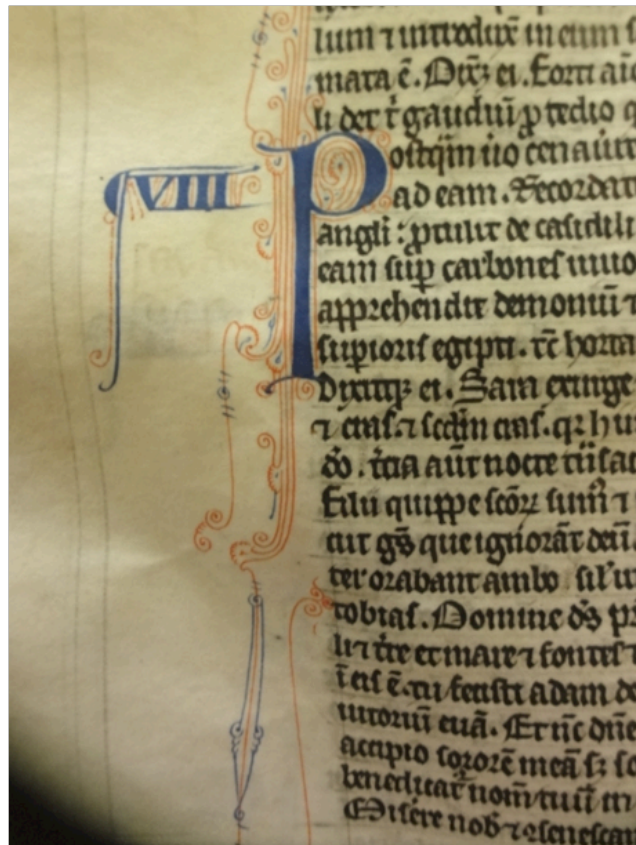 lum ⁊ introdux̄ in eum
mata ē. Dix̄ ei. Forti aīo
li det t̄ gaudiū ꝓ tedio q
VIII Postq̄m ū̊o cenauer̄t
ad eam. Recordat
angli : ꝓtulit de casidili
eam suꝑ carbones uiuo
apprehendit demoniū ⁊
supioris egipti. tc̄ horta
dixitqꝫ ei. Sara exurge
⁊ cras. ⁊ scdm̄ cras. qr hii
do. t̄cia aūt nocte iūcti
Filii quippe scōꝝ sumꝰ ⁊
cut gēs que ignorāt deū.
ter orabant ambo sil' ut
tobias. Domine ds̄ pr
li ⁊ t̄re et mare ⁊ fontes ⁊
ī eis ē. tu fecisti adam de
iutoriū euā. Et nc̄ dn̄e
accipio sororē meā sꝫ so
benedicat̄ nom̄ tuū in
Misere nob̄ ⁊ ꝯsenescam